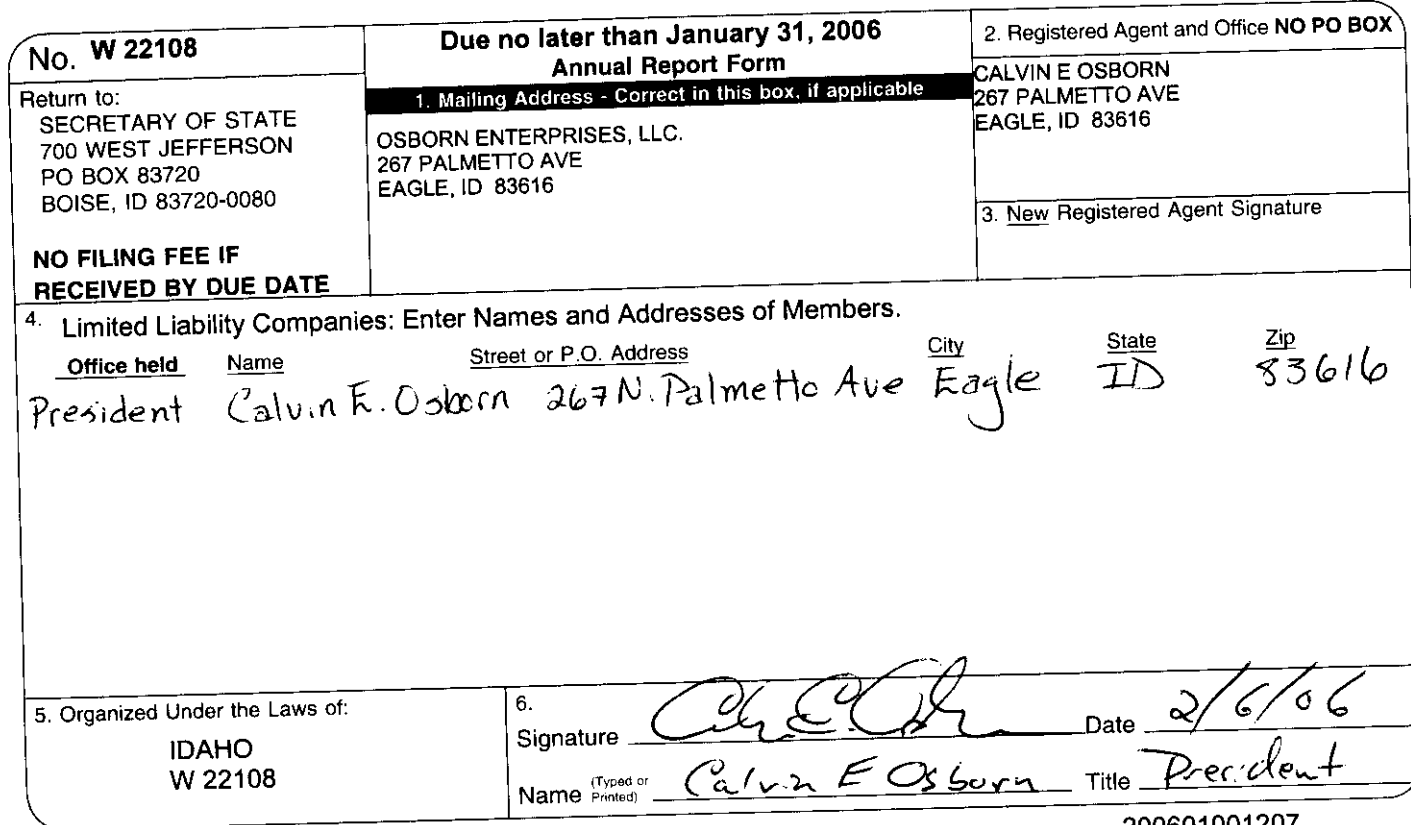 No. W 22108
Return to:
SECRETARY OF STATE
700 WEST JEFFERSON
PO BOX 83720
BOISE, ID 83720-0080
NO FILING FEE IF
RECEIVED BY DUE DATE
Due no later than January 31, 2006
Annual Report Form
1. Mailing Address - Correct in this box, if applicable
OSBORN ENTERPRISES, LLC.
267 PALMETTO AVE
EAGLE, ID 83616
2. Registered Agent and Office NO PO BOX
CALVIN E OSBORN
267 PALMETTO AVE
EAGLE, ID 83616
3. New Registered Agent Signature
4. Limited Liability Companies: Enter Names and Addresses of Members.
Office held Name Street or P.O. Address City State Zip
President Calvin E. Osborn 267 N. Palmetto Ave Eagle ID 83616
5. Organized Under the Laws of:
IDAHO
W 22108
6.
Signature Date 2/6/06
Name (Typed or Printed) Calvin E Osborn Title President
200601001207